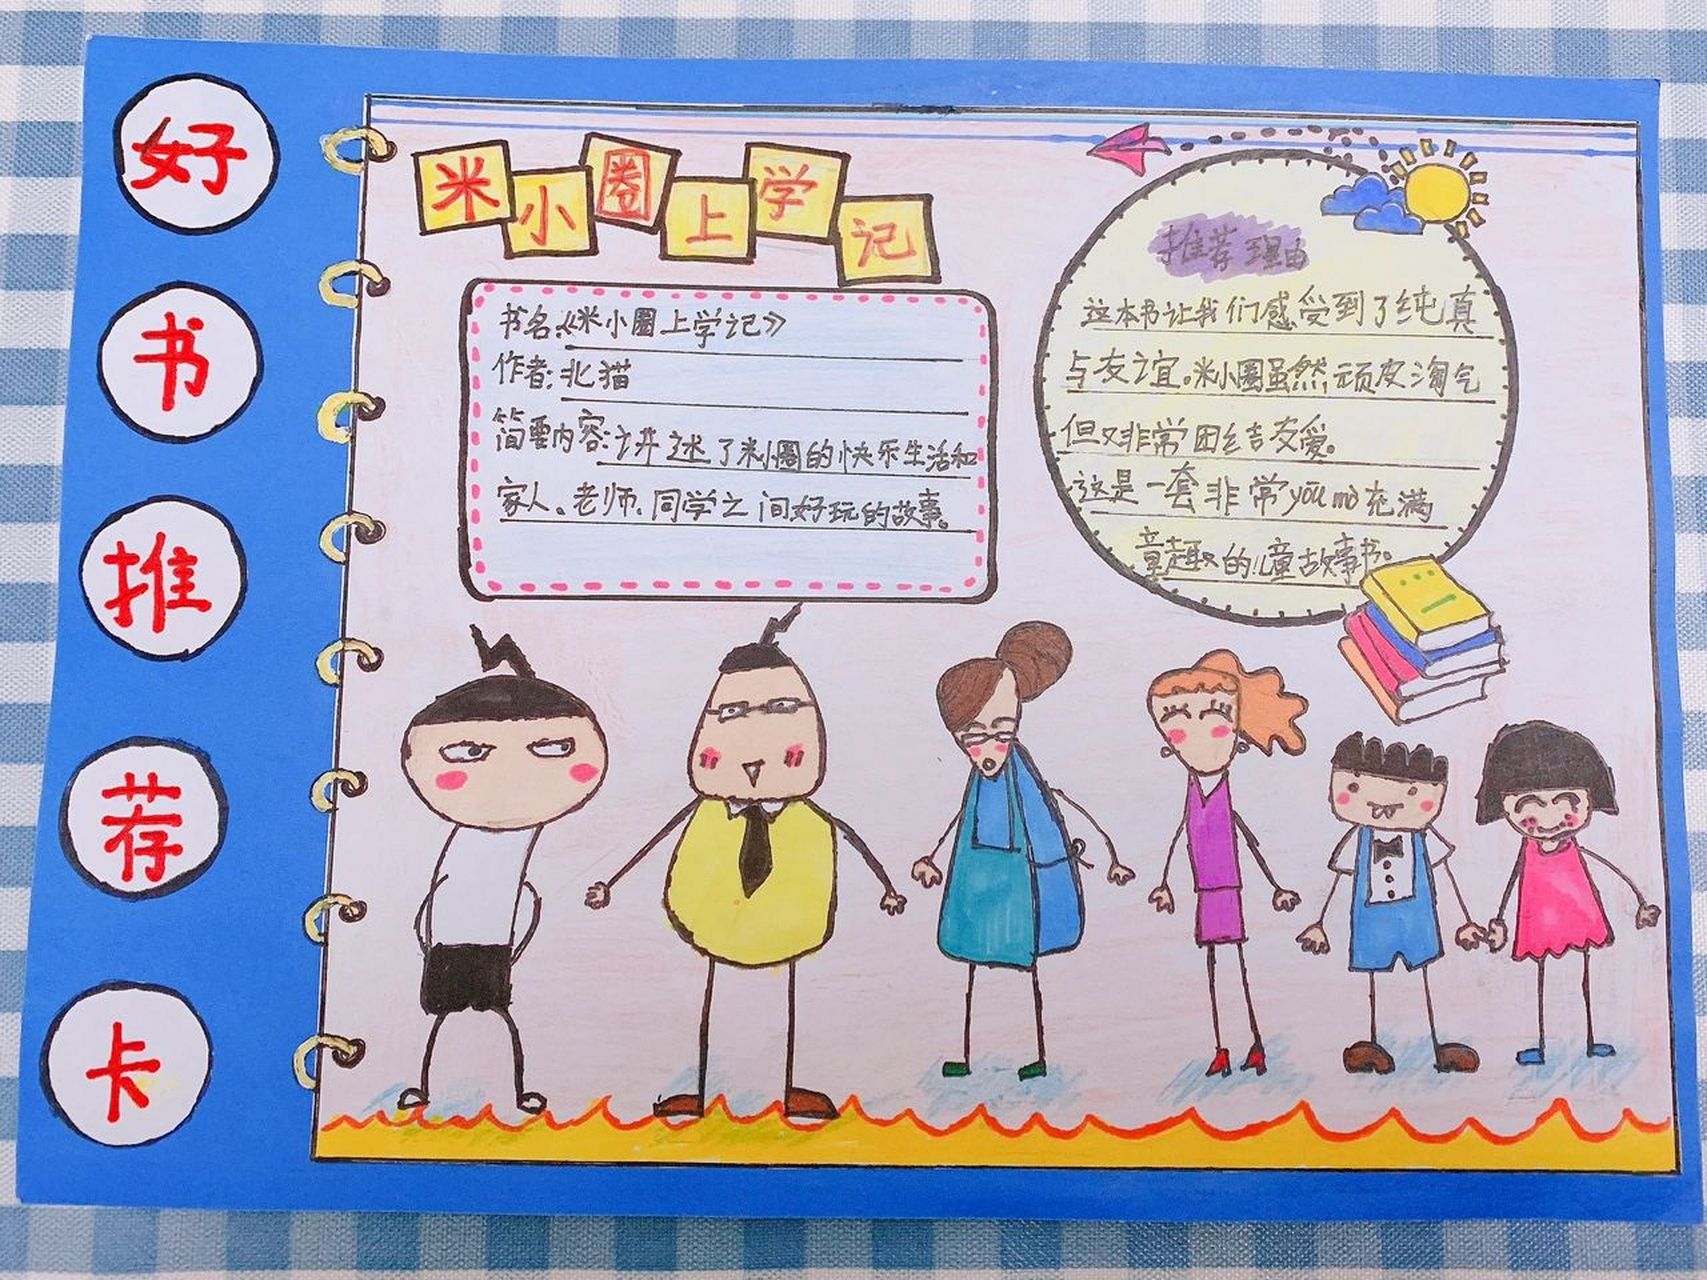 好书推荐卡
米小圈上学记
书名:《米小圈上学记》
作者:北猫
简要内容:讲述了米小圈的快乐生活和
家人、老师、同学之间好玩的故事。
推荐理由
这本书让我们感受到了纯真
与友谊。米小圈虽然顽皮淘气
但又非常团结友爱。
这是一套非常yōu mò充满
童趣的儿童故事书。